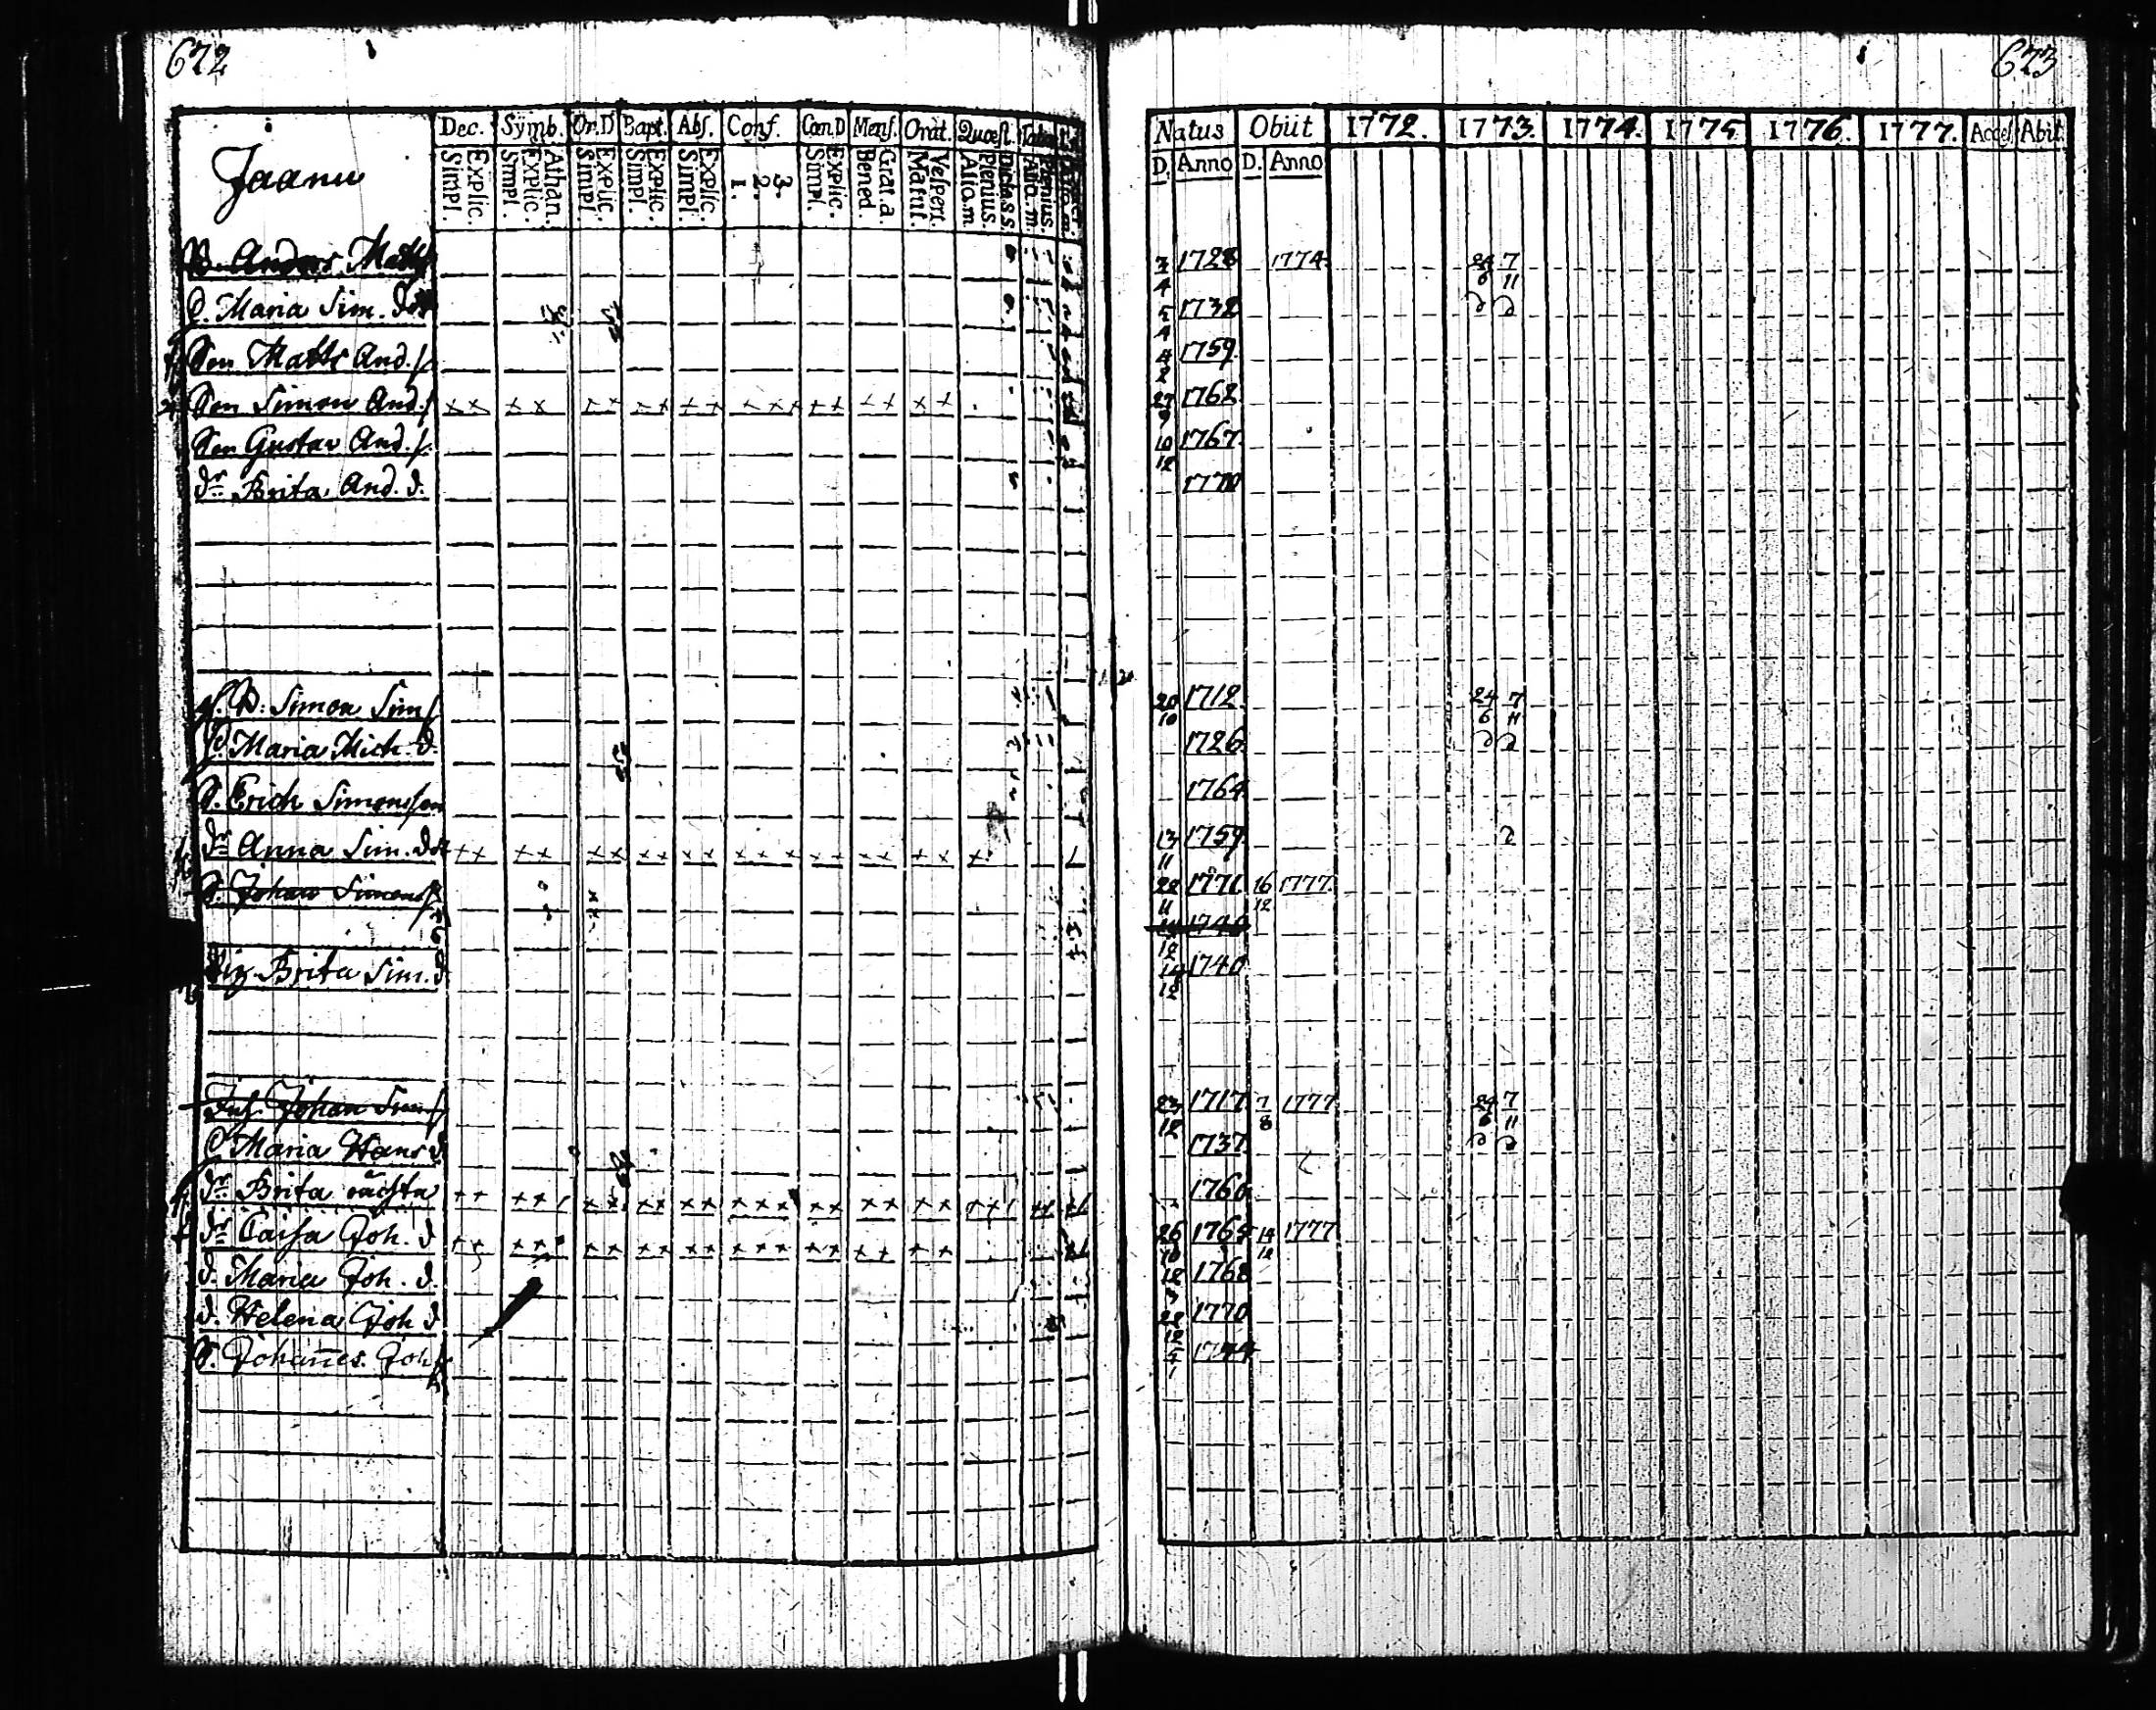 672
Jaanu
Dec. Symb. Or.D Bapt. Abſ. Conf. Cœn.D Menſ. Orat. Quæſt.
Explic. Simpl. Athan. Explic. Simpl. Explic. Simpl. Explic. Simpl. Explic. Simpl. 3. 2. 1. Explic. Simpl. Grat. a. Bened. Veſpert. Matut. Dicta s.s. Plenius. Aſſa.m. Plenius. Aſſa.m.
B. Anders Matts
Maria Sim. dotr
Son Matts And. ſ.
Son Simon And. ſ. x x x x x x x x x x x x x x x x x x x
Son Gustav And. ſ.
dr Brita And. d.
B. Simon Sim ſ
Maria Mich. d.
S. Erich Simonsſon
dr Anna Sim. dotr x x x x x x x x x x x x x x x x x x x x
S. Johan Simonsſ
Brita Sim. d
Inh. Johan Sim ſ
Maria Hans d
dr Brita x x x x x x x x x x x x x x x x x x x
dr Caisa Joh. d x x x x x x x x x x x x x x x x x x x
d. Maria Joh. d.
d. Helena Joh d
S. Johannes Joh ſ
673
Natus Obiit 1772. 1773. 1774. 1775. 1776. 1777. Acceſ. Abit.
D. Anno D. Anno
3 1728 1774 24 7
4 6 11
5 1732
4
4 1759
2
27 1762
9
10 1767
12
1770
20 1712 24 7
10 6 11
1726
1764
13 1759
11
22 1771 16 1777
11 12
1740
12
14 1740
12
23 1717 7 1777 24 7
12 8 6 11
1737
1760
26 1765 14 1777
10 12
12 1768
3
22 1770
12
5 1774